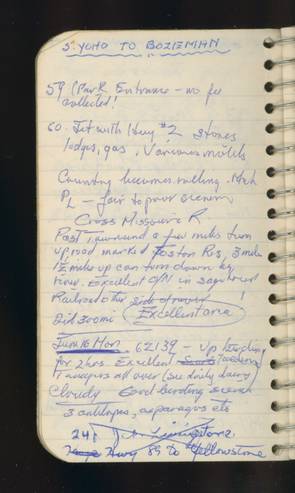 S. YOHO TO BOZIEMAN
59 (Park Entrance - no fee
collected!
60. Jct with Hwy #2 Stores
lodges, gas, Various motels
Country becomes rolling.
PL - fair to poor scenery
Cross Missouri R
Past Townsend a few miles turn
up road marked Toston Res, 3 miles
1½ miles up can turn down by
river. Excellent O/N in sagebrush
Railroad other side of river !
Did 300mi Excellent area
June 16 Mon. 62139 - Up
for 2 hrs Excellent
all over (see daily diary
Cloudy Good birding
3 antelopes, asparagus etc
241 Jct Livingstone
Hwy 89 to Yellowstone